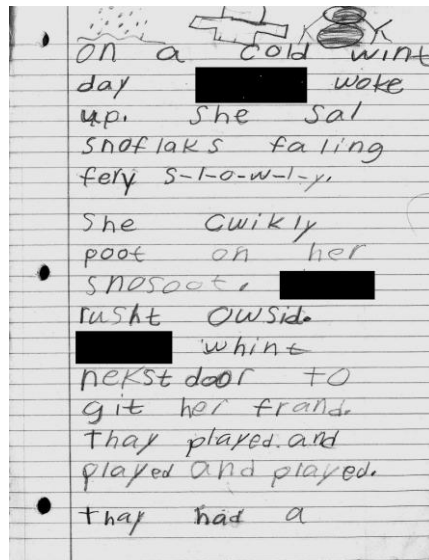 on a cold wint
day woke
up. She sal
snoflaks faling
fery s-l-o-w-l-y.
She cwikly
poot on her
snosoot.
rusht owsid.
whint
nekst door to
git her frand.
Thay played. and
played and played.
Thay had a